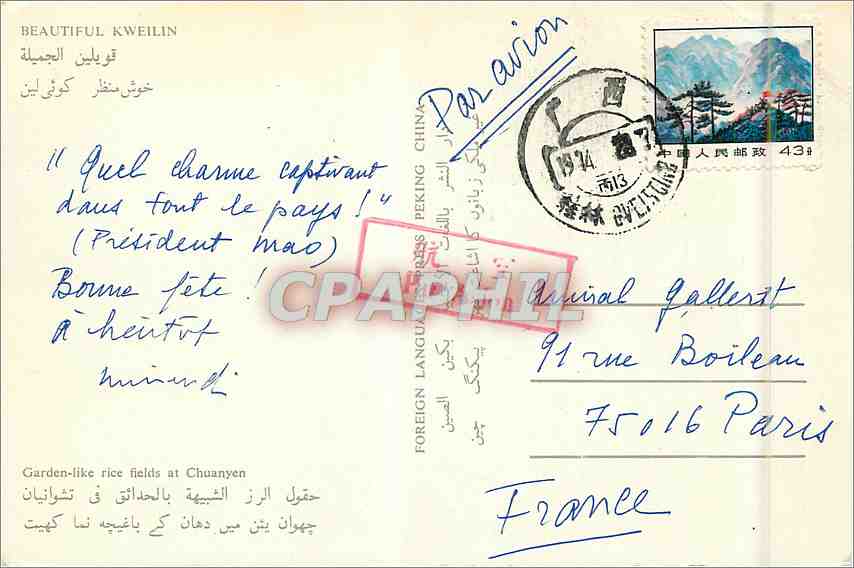 BEAUTIFUL KWEILIN
قويلين الجميلة
خوش منظر كوئى لين
" Quel charme captivant
dans tout le pays ! "
(Président Mao)
Bonne fête !
à bientôt
Garden-like rice fields at Chuanyen
حقول الرز الشبيهة بالحدائق فى تشوانيان
چهوان يئن ميں دهان كے باغيچہ نما كهيت
FOREIGN LANGUAGES PRESS PEKING CHINA
دار النشر باللغات بكين الصين
پيكنگ چين
Par avion
中国人民邮政 43分
广西
桂林
CPAPHIL
Amiral
91 rue Boileau
75016 Paris
France